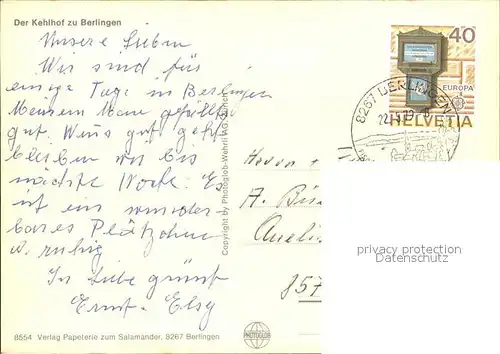 Der Kehlhof zu Berlingen
Unsere Lieben
Wir sind für
einige Tage in Berlingen
Meinem Mann gefällt es
gut. Wenns gut geht
bleiben wir bis
nächste Woche. Es
ist ein wunder-
bares Plätzchen
u. ruhig
In Liebe grüsst
Ernst - Elsy
8554 Verlag Papeterie zum Salamander, 8267 Berlingen
Copyright by Photoglob-Wehrli AG, Zürich
PHOTOGLOB
40
EUROPA
HELVETIA
8267 BERLINGEN
Herrn
A.
857
privacy protection